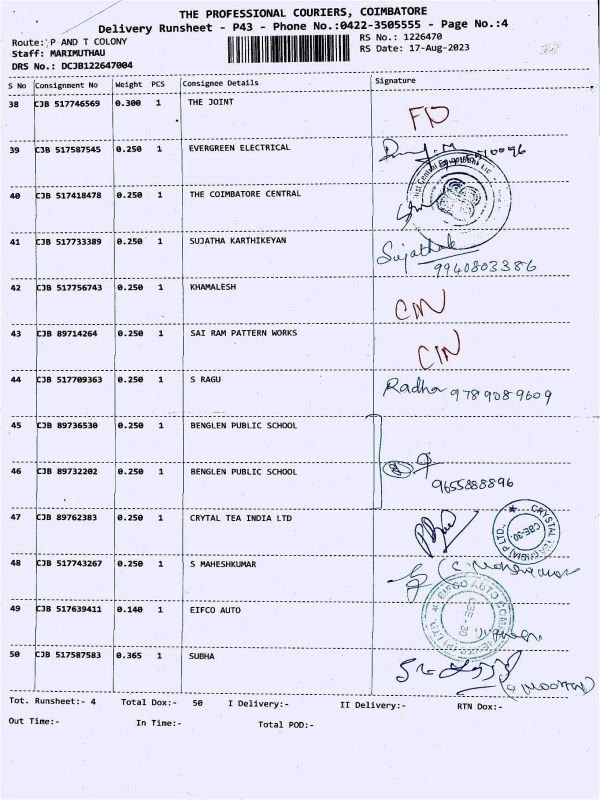 THE PROFESSIONAL COURIERS, COIMBATORE
Delivery Runsheet - P43 - Phone No.:0422-3505555 - Page No.:4
Route: P AND T COLONY
RS No.: 1226470
Staff: MARIMUTHAU
RS Date: 17-Aug-2023
DRS No.: DCJB122647004
S No Consignment No Weight PCS Consignee Details Signature
38 CJB 517746569 0.300 1 THE JOINT
39 CJB 517587545 0.250 1 EVERGREEN ELECTRICAL
40 CJB 517418478 0.250 1 THE COIMBATORE CENTRAL
41 CJB 517733389 0.250 1 SUJATHA KARTHIKEYAN Sujathak
9940803386
42 CJB 517756743 0.250 1 KHAMALESH CIN
43 CJB 89714264 0.250 1 SAI RAM PATTERN WORKS CIN
44 CJB 517709363 0.250 1 S RAGU Radha 9789089609
45 CJB 89736530 0.250 1 BENGLEN PUBLIC SCHOOL
46 CJB 89732202 0.250 1 BENGLEN PUBLIC SCHOOL
9655888896
47 CJB 89762383 0.250 1 CRYTAL TEA INDIA LTD CRYSTAL TEA (INDIA) P LTD. CBE-30.
48 CJB 517743267 0.250 1 S MAHESHKUMAR
49 CJB 517639411 0.140 1 EIFCO AUTO
50 CJB 517587583 0.365 1 SUBHA
Tot. Runsheet:- 4 Total Dox:- 50 I Delivery:- II Delivery:- RTN Dox:-
Out Time:- In Time:- Total POD:-